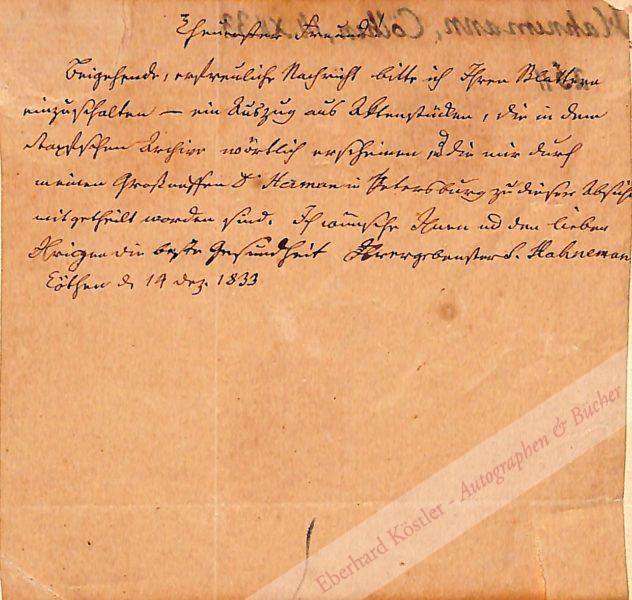 Theuerster Freund!
Beigehende, erfreuliche Nachricht bitte ich Ihren Blättern
einzuschalten — ein Auszug aus Aktenstücken, die in dem
Stapfschen Archive wörtlich erscheinen u die mir durch
meinen Großneffen D. Herman in Petersburg zu dieser Absicht
mitgetheilt worden sind. Ich wünsche Ihnen und den lieben
Ihrigen die beste Gesundheit Ihr ergebenster S. Hahneman
Cöthen d. 14 Dez. 1833
Hahnemann, Cöthen
Eberhard Köstler - Autographen & Bücher